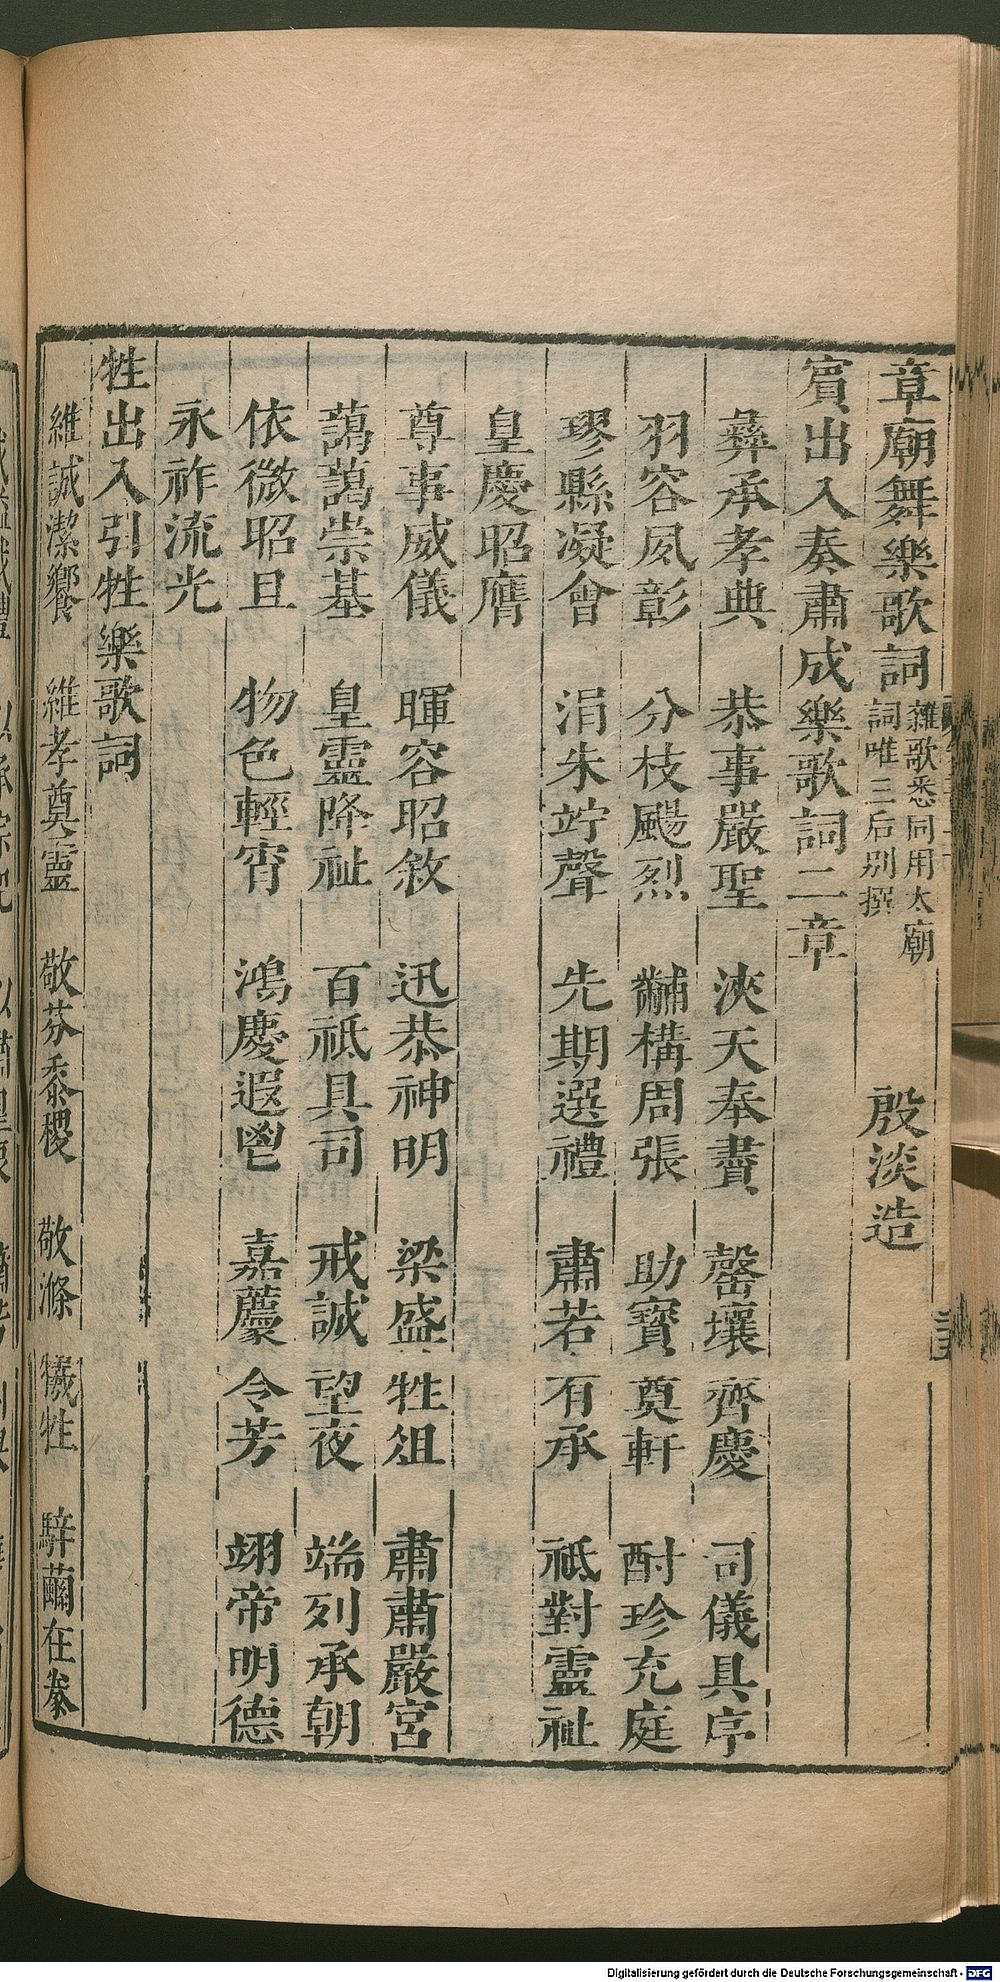 章廟舞樂歌詞 雜歌悉同用太廟詞唯三后别撰 殷淡造
賔出入奏肅成樂歌詞二章
彝承孝典 恭事嚴聖 浹天奉賮 罄壤齊慶 司儀具序
羽容夙彰 分枝颺烈 黼構周張 助寳奠軒 酎珍充庭
璆縣凝會 涓朱竚聲 先期選禮 肅若有承 祗對靈祉
皇慶昭膺
尊事威儀 暉容昭敘 迅恭神明 梁盛牲俎 肅肅嚴宮
藹藹崇基 皇靈降祉 百祇具司 戒誠望夜 端列承朝
依微昭旦 物色輕宵 鴻慶遐鬯 嘉薦令芳 翊帝明德
永祚流光
牲出入引牲樂歌詞
維誠潔饗 維孝奠靈 敬芬黍稷 敬滌犧牲 騂繭在豢
Digitalisierung gefördert durch die Deutsche Forschungsgemeinschaft - DFG